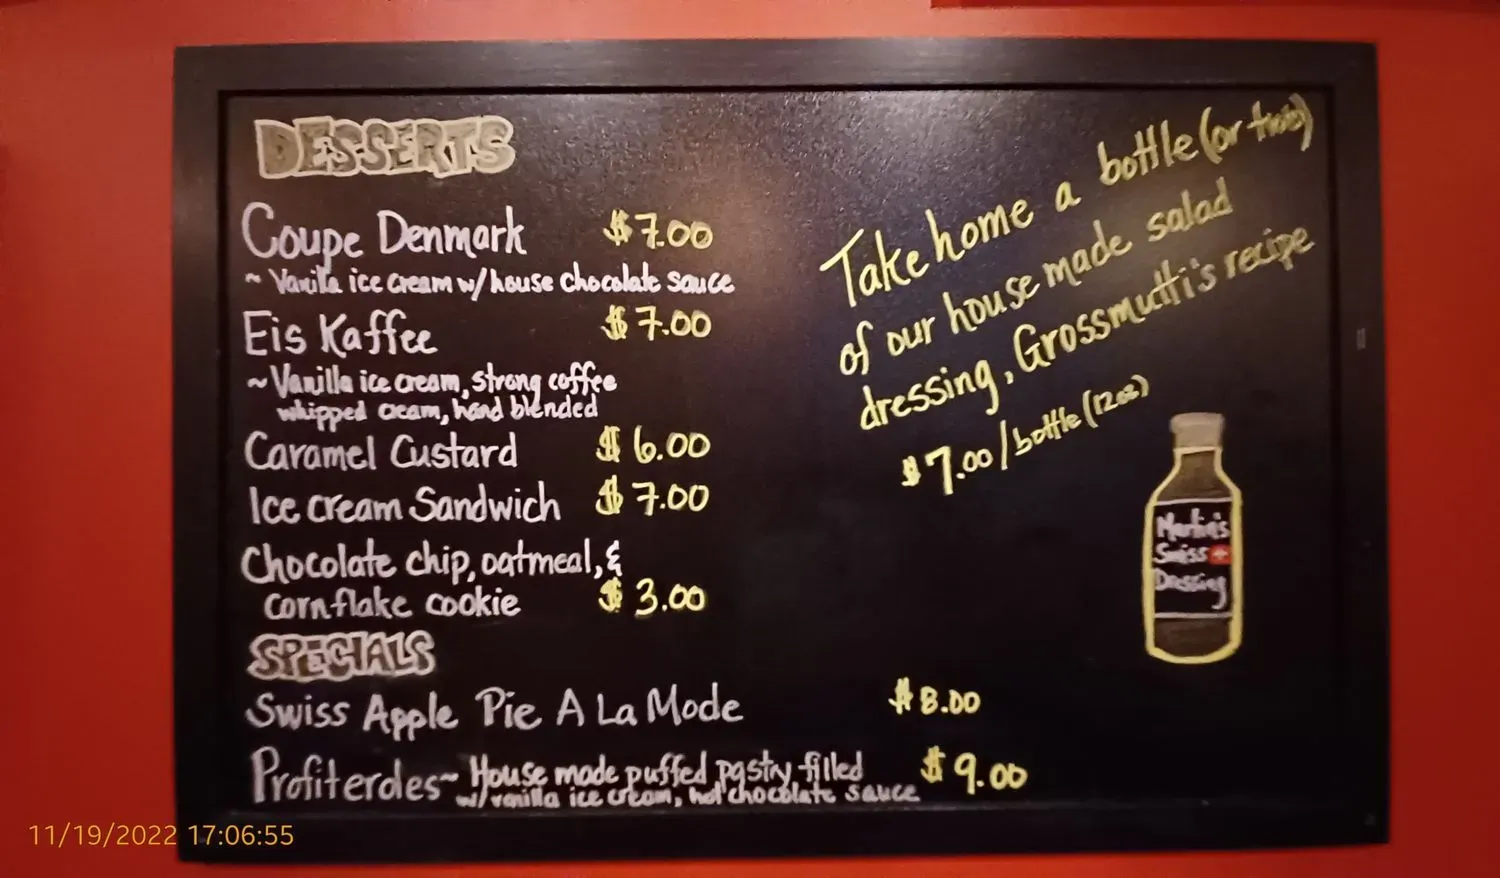 DESSERTS
Coupe Denmark $7.00
~ Vanilla ice cream w/house chocolate sauce
Eis Kaffee $7.00
~Vanilla ice cream, strong coffee
whipped cream, hand blended
Caramel Custard $6.00
Ice cream Sandwich $7.00
Chocolate chip, oatmeal, &
cornflake cookie $3.00
SPECIALS
Swiss Apple Pie A La Mode $8.00
Profiteroles~ House made puffed pastry filled $9.00
w/vanilla ice cream, hot chocolate sauce
Take home a bottle (or two)
of our house made salad
dressing, Grossmutti's recipe
$7.00/bottle (12oz)
Martin's
Swiss
Dressing
11/19/2022 17:06:55